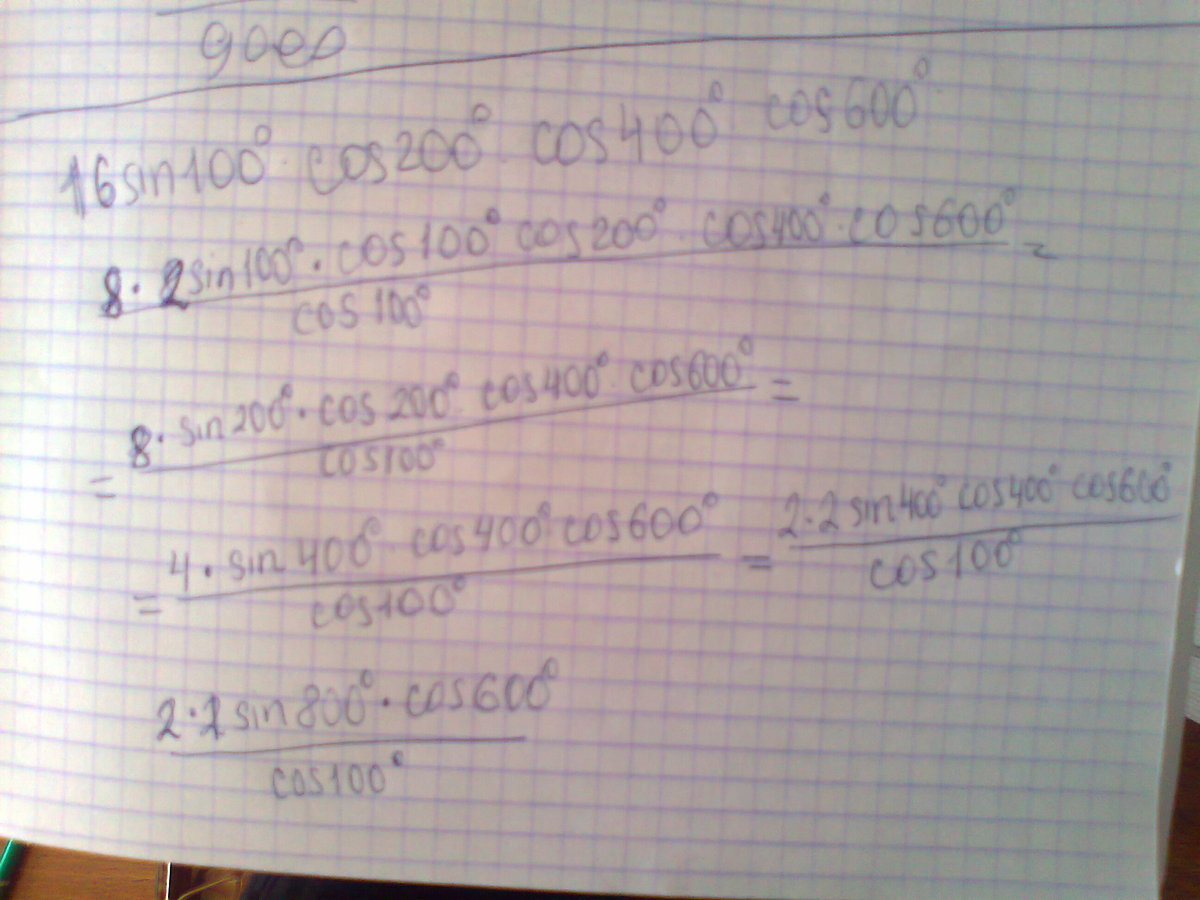 9000
16 sin100° · cos200° · cos400° cos600°
8 · 2 sin100° · cos100° cos200° · cos400° · cos600° =
cos100°
8 · sin200° · cos200° cos400° cos600° =
= cos100°
4 · sin400° · cos400° cos600° = 2 · 2 sin400° cos400° cos600°
= cos100° cos100°
2 · 1 sin800° · cos600°
cos100°